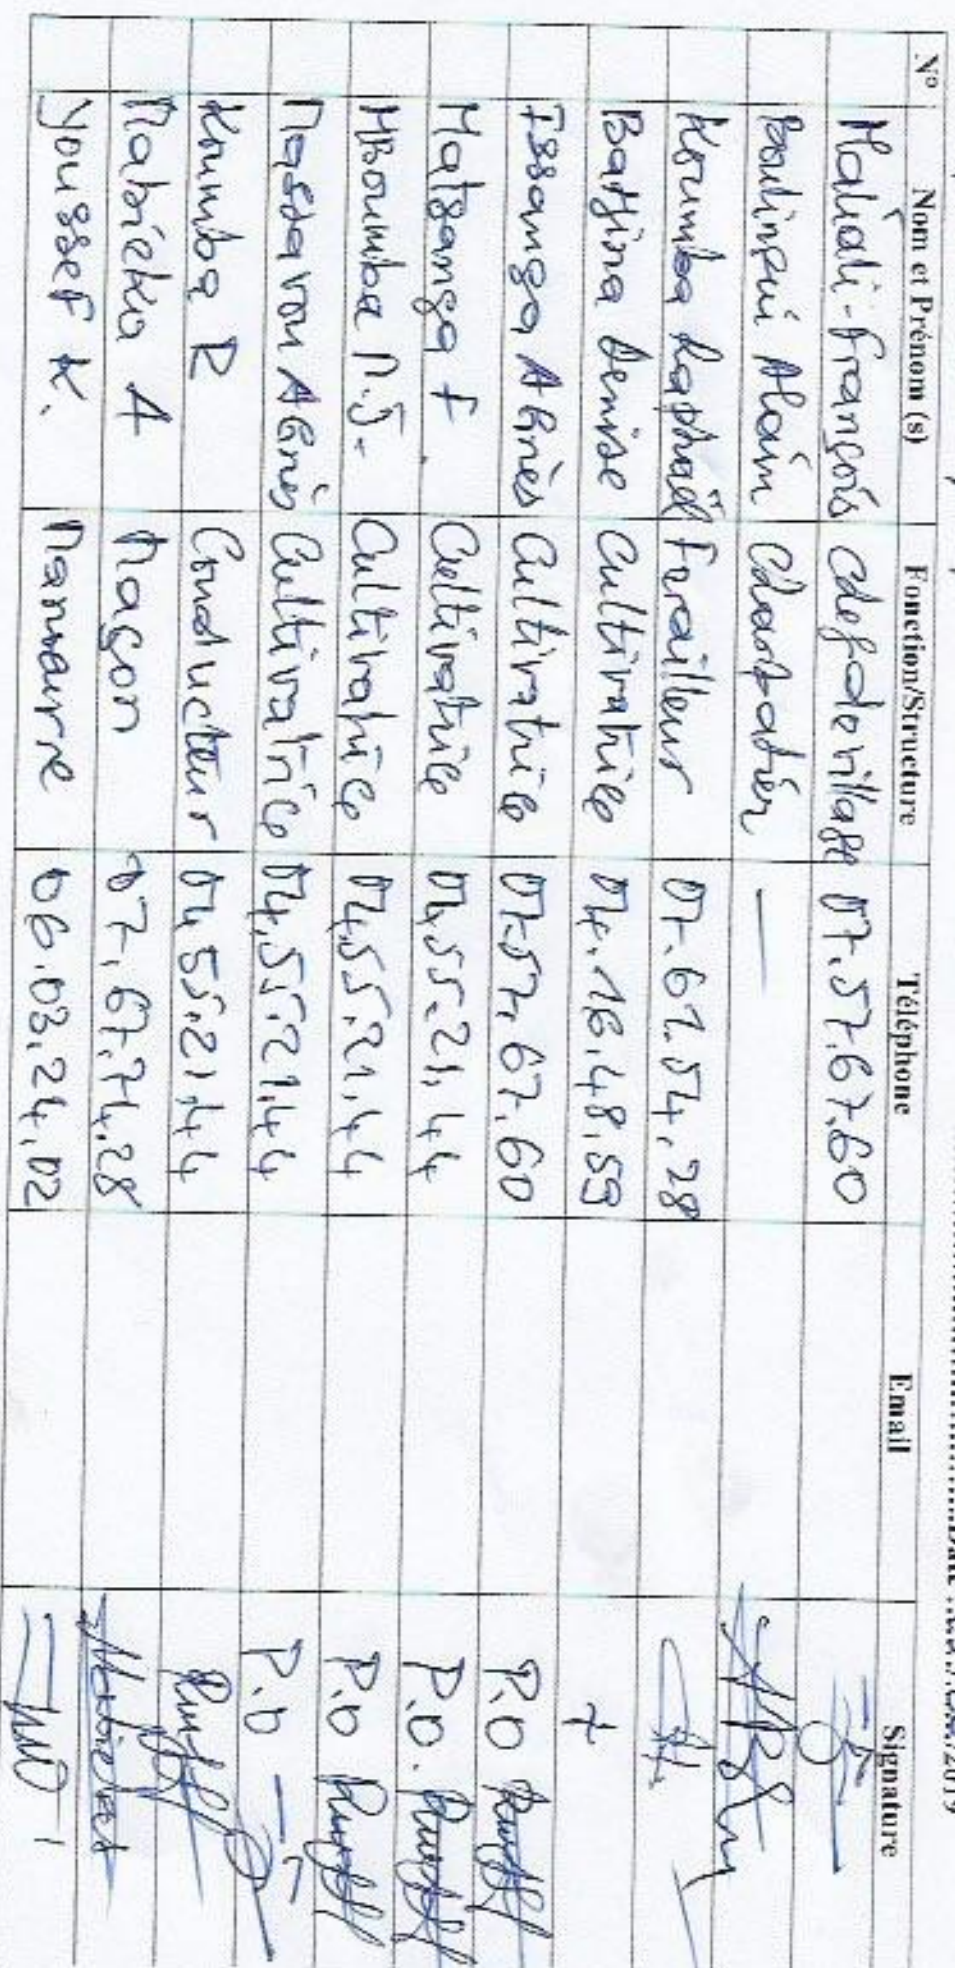 Date
2019
N° Nom et Prénom (s) Fonction/Structure Téléphone Email Signature
François Chef de village 07.57.67.60
Alain —
Koumba Raphaël Ferailleur 07.61.54.28
Denise Cultivatrice 04.16.48.59
Issanga AGnès Cultivatrice 07.57.67.60 P.O
Matsanga F Cultivatrice 04.55.21.44 P.O.
MBoumba M.J. Cultivatrice 04.55.21.44 P.O
AGnès Cultivatrice 04.55.21.44 P.O
Koumba R Conducteur 04.55.21.44
Mabicka A Maçon 07.67.74.28
Youssef K. 06.03.24.02